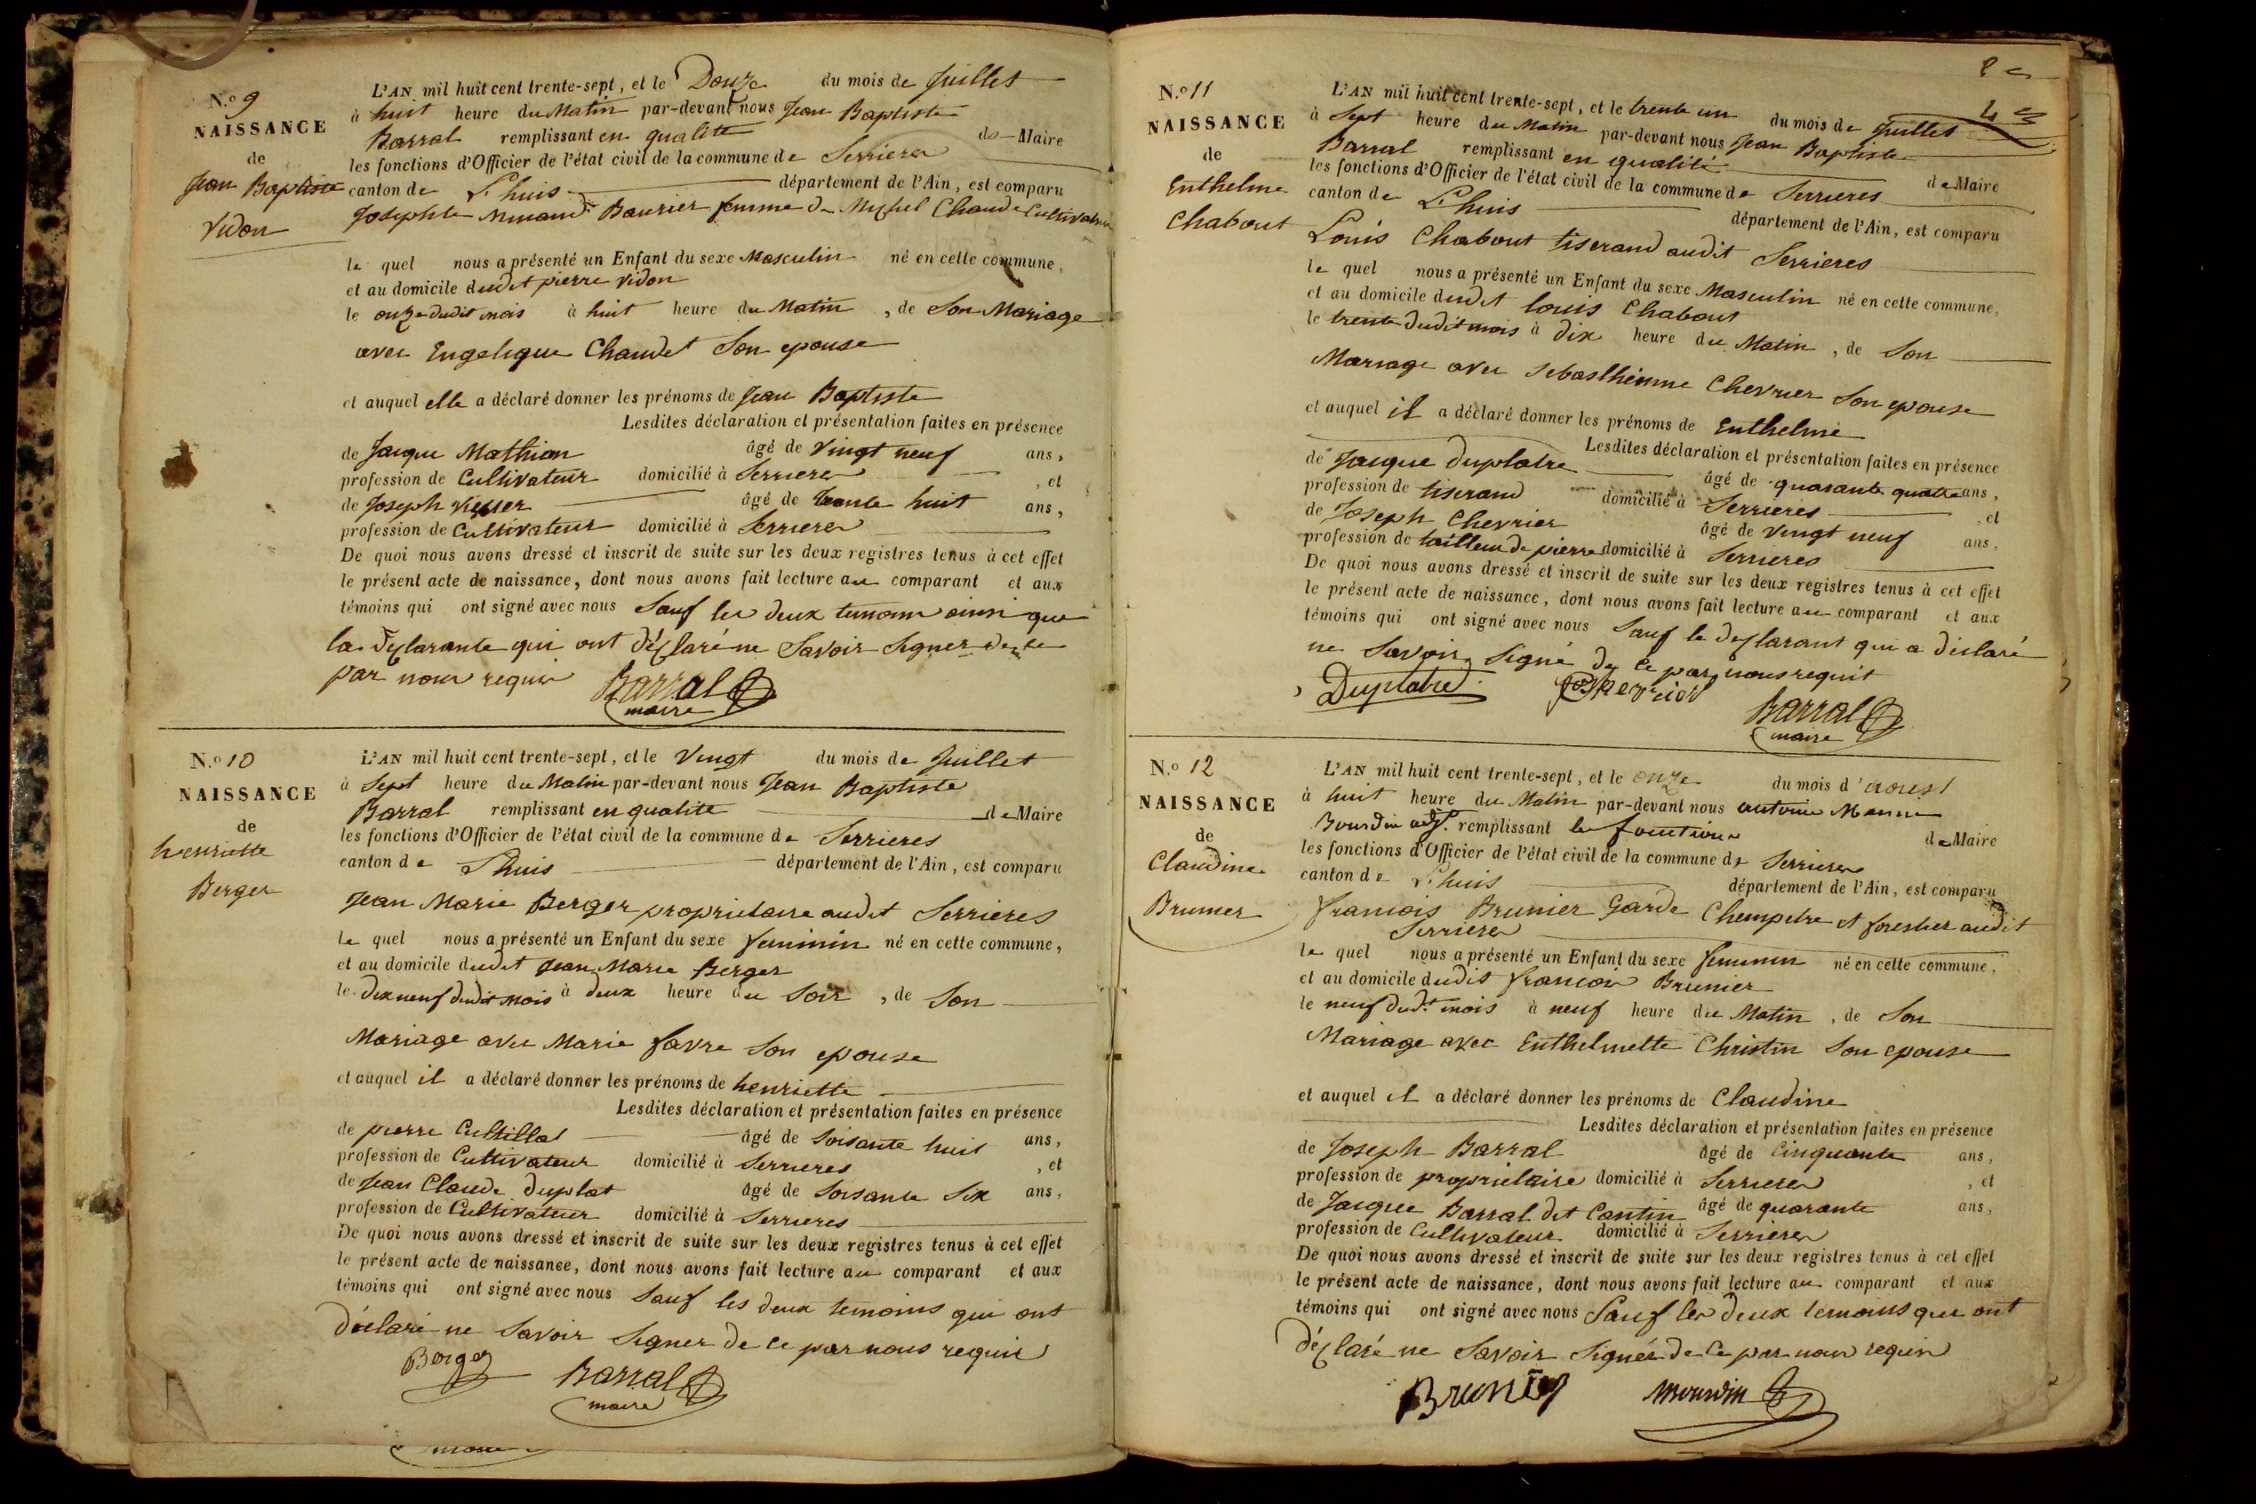 N.º 9
NAISSANCE
de
Jean Baptiste
Vidon
L'AN mil huit cent trente-sept, et le Douze du mois de Juillet
à huit heure du Matin par-devant nous Jean Baptiste
Barral remplissant en qualité de Maire
les fonctions d'Officier de l'état civil de la commune de Serrieres
canton de L'huis département de l'Ain, est comparu
Josephte femme de Chaudet Cultivateur
le quel nous a présenté un Enfant du sexe Masculin né en cette commune,
et au domicile dudit pierre Vidon
le onze dudit mois à huit heure du Matin, de Son Mariage
avec Engelique Chaudet Son epouse
et auquel elle a déclaré donner les prénoms de Jean Baptiste
Lesdites déclaration et présentation faites en présence
de Jacque Mathion âgé de Vingt neuf ans,
profession de Cultivateur domicilié à Serrieres, et
de Joseph âgé de trente huit ans,
profession de Cultivateur domicilié à Serrieres
De quoi nous avons dressé et inscrit de suite sur les deux registres tenus à cet effet
le présent acte de naissance, dont nous avons fait lecture au comparant et aux
témoins qui ont signé avec nous Sauf les deux temoins ainsi que
la déclarante qui ont déclaré ne Savoir Signer de ce
par nous requis Barral
maire
N.º 10
NAISSANCE
de
henriette
Berger
L'AN mil huit cent trente-sept, et le Vingt du mois de Juillet
à Sept heure du Matin par-devant nous Jean Baptiste
Barral remplissant en qualite de Maire
les fonctions d'Officier de l'état civil de la commune de Serrieres
canton de L'huis département de l'Ain, est comparu
Jean Marie Berger proprietaire audit Serrieres
le quel nous a présenté un Enfant du sexe feminin né en cette commune,
et au domicile dudit Jean Marie Berger
le dix neuf dudit mois à deux heure du Soir, de Son
Mariage avec Marie favre Son epouse
et auquel il a déclaré donner les prénoms de henriette
Lesdites déclaration et présentation faites en présence
de pierre Cultillat âgé de Soisante huit ans,
profession de Cultivateur domicilié à Serrieres, et
de Jean Claude duplat âgé de Soisante Six ans,
profession de Cultivateur domicilié à Serrieres
De quoi nous avons dressé et inscrit de suite sur les deux registres tenus à cet effet
le présent acte de naissance, dont nous avons fait lecture au comparant et aux
témoins qui ont signé avec nous Sauf les deux temoins qui ont
déclaré ne Savoir Signer de ce par nous requis
Berger Barral
maire
maire
N.º 11
NAISSANCE
de
Enthelme
Chabout
L'AN mil huit cent trente-sept, et le trente un du mois de Juillet
à Sept heure du Matin par-devant nous Jean Baptiste
Barral remplissant en qualité de Maire
les fonctions d'Officier de l'état civil de la commune de Serrieres
canton de L'huis département de l'Ain, est comparu
Louis Chabout tiserand audit Serrieres
le quel nous a présenté un Enfant du sexe Masculin né en cette commune,
et au domicile dudit louis Chabout
le trente dudit mois à dix heure du Matin, de Son
Mariage avec Sebasthienne Chevrier Son epouse
et auquel il a déclaré donner les prénoms de Enthelme
Lesdites déclaration et présentation faites en présence
de Jacque Duplatre âgé de quarante quatre ans,
profession de tiserand domicilié à Serrieres, et
de Joseph Chevrier âgé de Vingt neuf ans,
profession de tailleur de pierre domicilié à Serrieres
De quoi nous avons dressé et inscrit de suite sur les deux registres tenus à cet effet
le présent acte de naissance, dont nous avons fait lecture au comparant et aux
témoins qui ont signé avec nous Sauf le declarant qui a déclaré
ne Savoir Signé de Ce par nous requit
Duplatre Chevrier
Barral
maire
N.º 12
NAISSANCE
de
Claudine
Brunier
L'AN mil huit cent trente-sept, et le onze du mois d'aoust
à huit heure du Matin par-devant nous antoine
Bourdin adj. remplissant les fonctions de Maire
les fonctions d'Officier de l'état civil de la commune de Serrieres
canton de L'huis département de l'Ain, est comparu
francois Brunier Garde Champetre et forestier audit
Serrieres
le quel nous a présenté un Enfant du sexe feminin né en cette commune,
et au domicile dudit francois Brunier
le neuf dud.t mois à neuf heure du Matin, de Son
Mariage avec Enthelmette Christin Son epouse
et auquel il a déclaré donner les prénoms de Claudine
Lesdites déclaration et présentation faites en présence
de Joseph Barral âgé de Cinquante ans,
profession de proprietaire domicilié à Serrieres, et
de Jacque Barral dit Cantin âgé de quarante ans,
profession de Cultivateur domicilié à Serrieres
De quoi nous avons dressé et inscrit de suite sur les deux registres tenus à cet effet
le présent acte de naissance, dont nous avons fait lecture au comparant et aux
témoins qui ont signé avec nous Sauf les deux temoins qui ont
déclaré ne Savoir Signér de Ce par nous requis
Brunier Bourdin